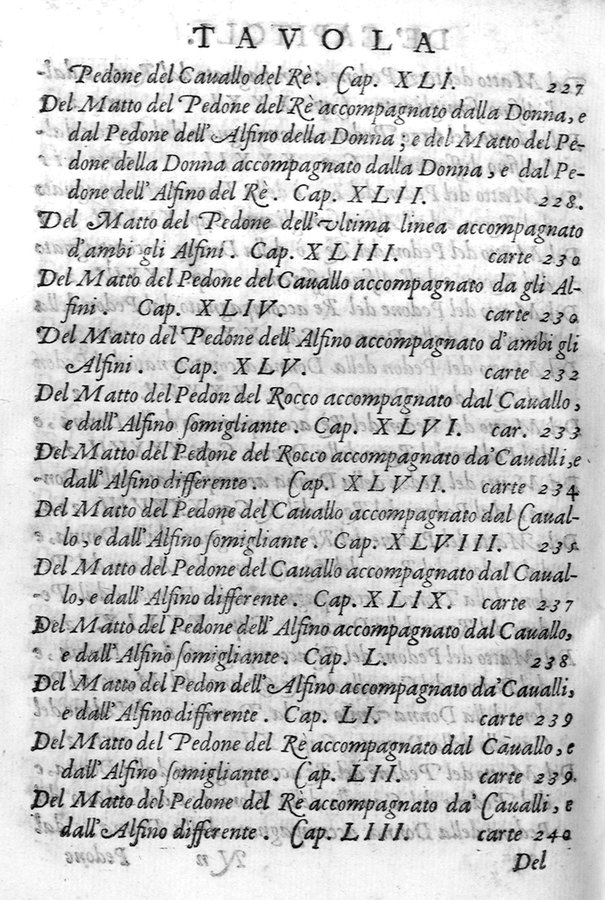 TAVOLA
Pedone del Cauallo del Rè. Cap. XLI. 227
Del Matto del Pedone del Rè accompagnato dalla Donna, e
dal Pedone dell'Alfino della Donna; e del Matto del Pe-
done della Donna accompagnato dalla Donna, e dal Pe-
done dell'Alfino del Rè. Cap. XLII. 228.
Del Matto del Pedone dell'vltima linea accompagnato
d'ambi gli Alfini. Cap. XLIII. carte 230
Del Matto del Pedone del Cauallo accompagnato da gli Al-
fini. Cap. XLIV. carte 230
Del Matto del Pedone dell'Alfino accompagnato d'ambi gli
Alfini. Cap. XLV. carte 232
Del Matto del Pedon del Rocco accompagnato dal Cauallo,
e dall'Alfino ſomigliante. Cap. XLVI. car. 233
Del Matto del Pedone del Rocco accompagnato da'Caualli, e
dall'Alfino differente. Cap. XLVII. carte 234
Del Matto del Pedone del Cauallo accompagnato dal Caual-
lo, e dall'Alfino ſomigliante. Cap. XLVIII. 235
Del Matto del Pedone del Cauallo accompagnato dal Caual-
lo, e dall'Alfino differente. Cap. XLIX. carte 237
Del Matto del Pedone dell'Alfino accompagnato dal Cauallo,
e dall'Alfino ſomigliante. Cap. L. 238
Del Matto del Pedon dell'Alfino accompagnato da'Caualli,
e dall'Alfino differente. Cap. LI. carte 239
Del Matto del Pedone del Rè accompagnato dal Cauallo, e
dall'Alfino ſomigliante. Cap. LII. carte 239.
Del Matto del Pedone del Rè accompagnato da'Caualli, e
dall'Alfino differente. Cap. LIII. carte 240
Del